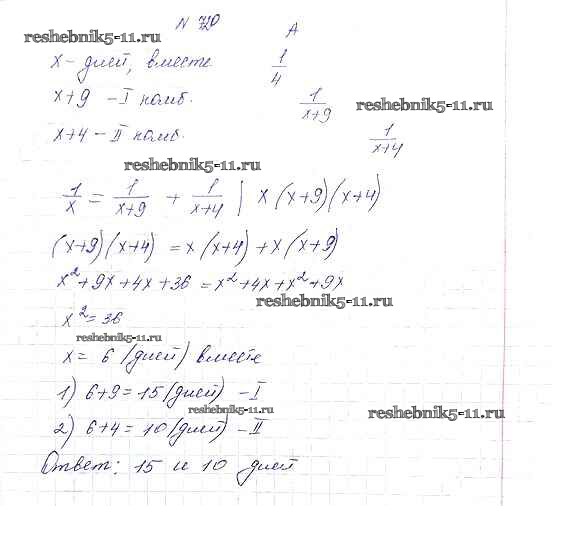 N 720 A
reshebnik5-11.ru
x - дней, вместе 1/4
x+9 - I комб. 1/(x+9)
reshebnik5-11.ru
x+4 - II комб. 1/(x+4)
reshebnik5-11.ru
1/x = 1/(x+9) + 1/(x+4) | x (x+9)(x+4)
(x+9)(x+4) = x(x+4) + x(x+9)
x²+9x+4x+36 = x²+4x+x²+9x
reshebnik5-11.ru
x²=36
reshebnik5-11.ru
x = 6 (дней) вместе
1) 6+9=15 (дней) - I
reshebnik5-11.ru
reshebnik5-11.ru
2) 6+4=10 (дней) - II
Ответ: 15 и 10 дней